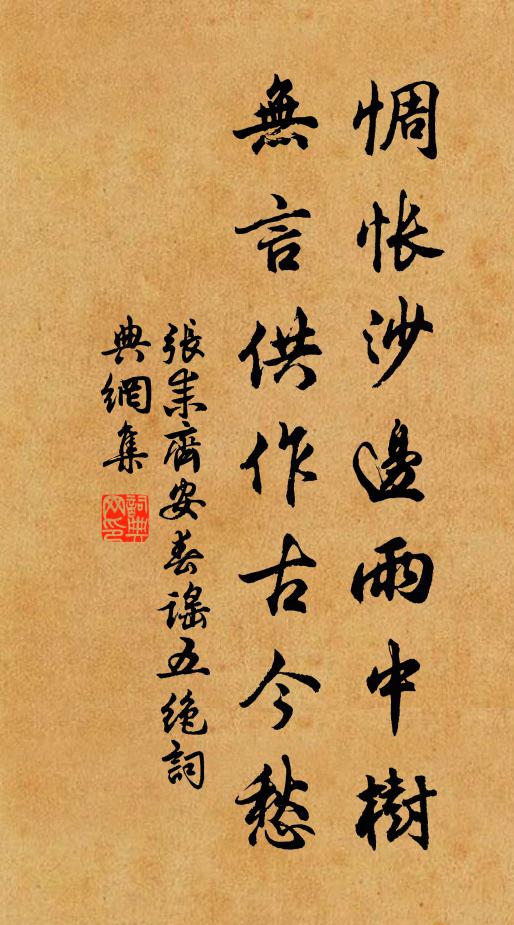 惆悵沙邊雨中樹
無言供作古今愁
張耒齊安春謠五絕詞
典網集
詞典
網印